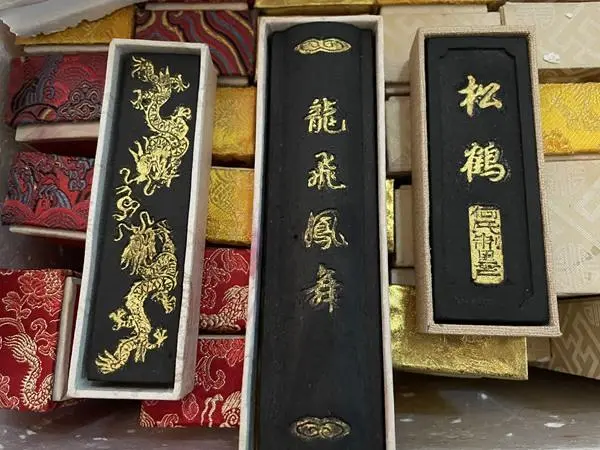 龍飛鳳舞
松鶴